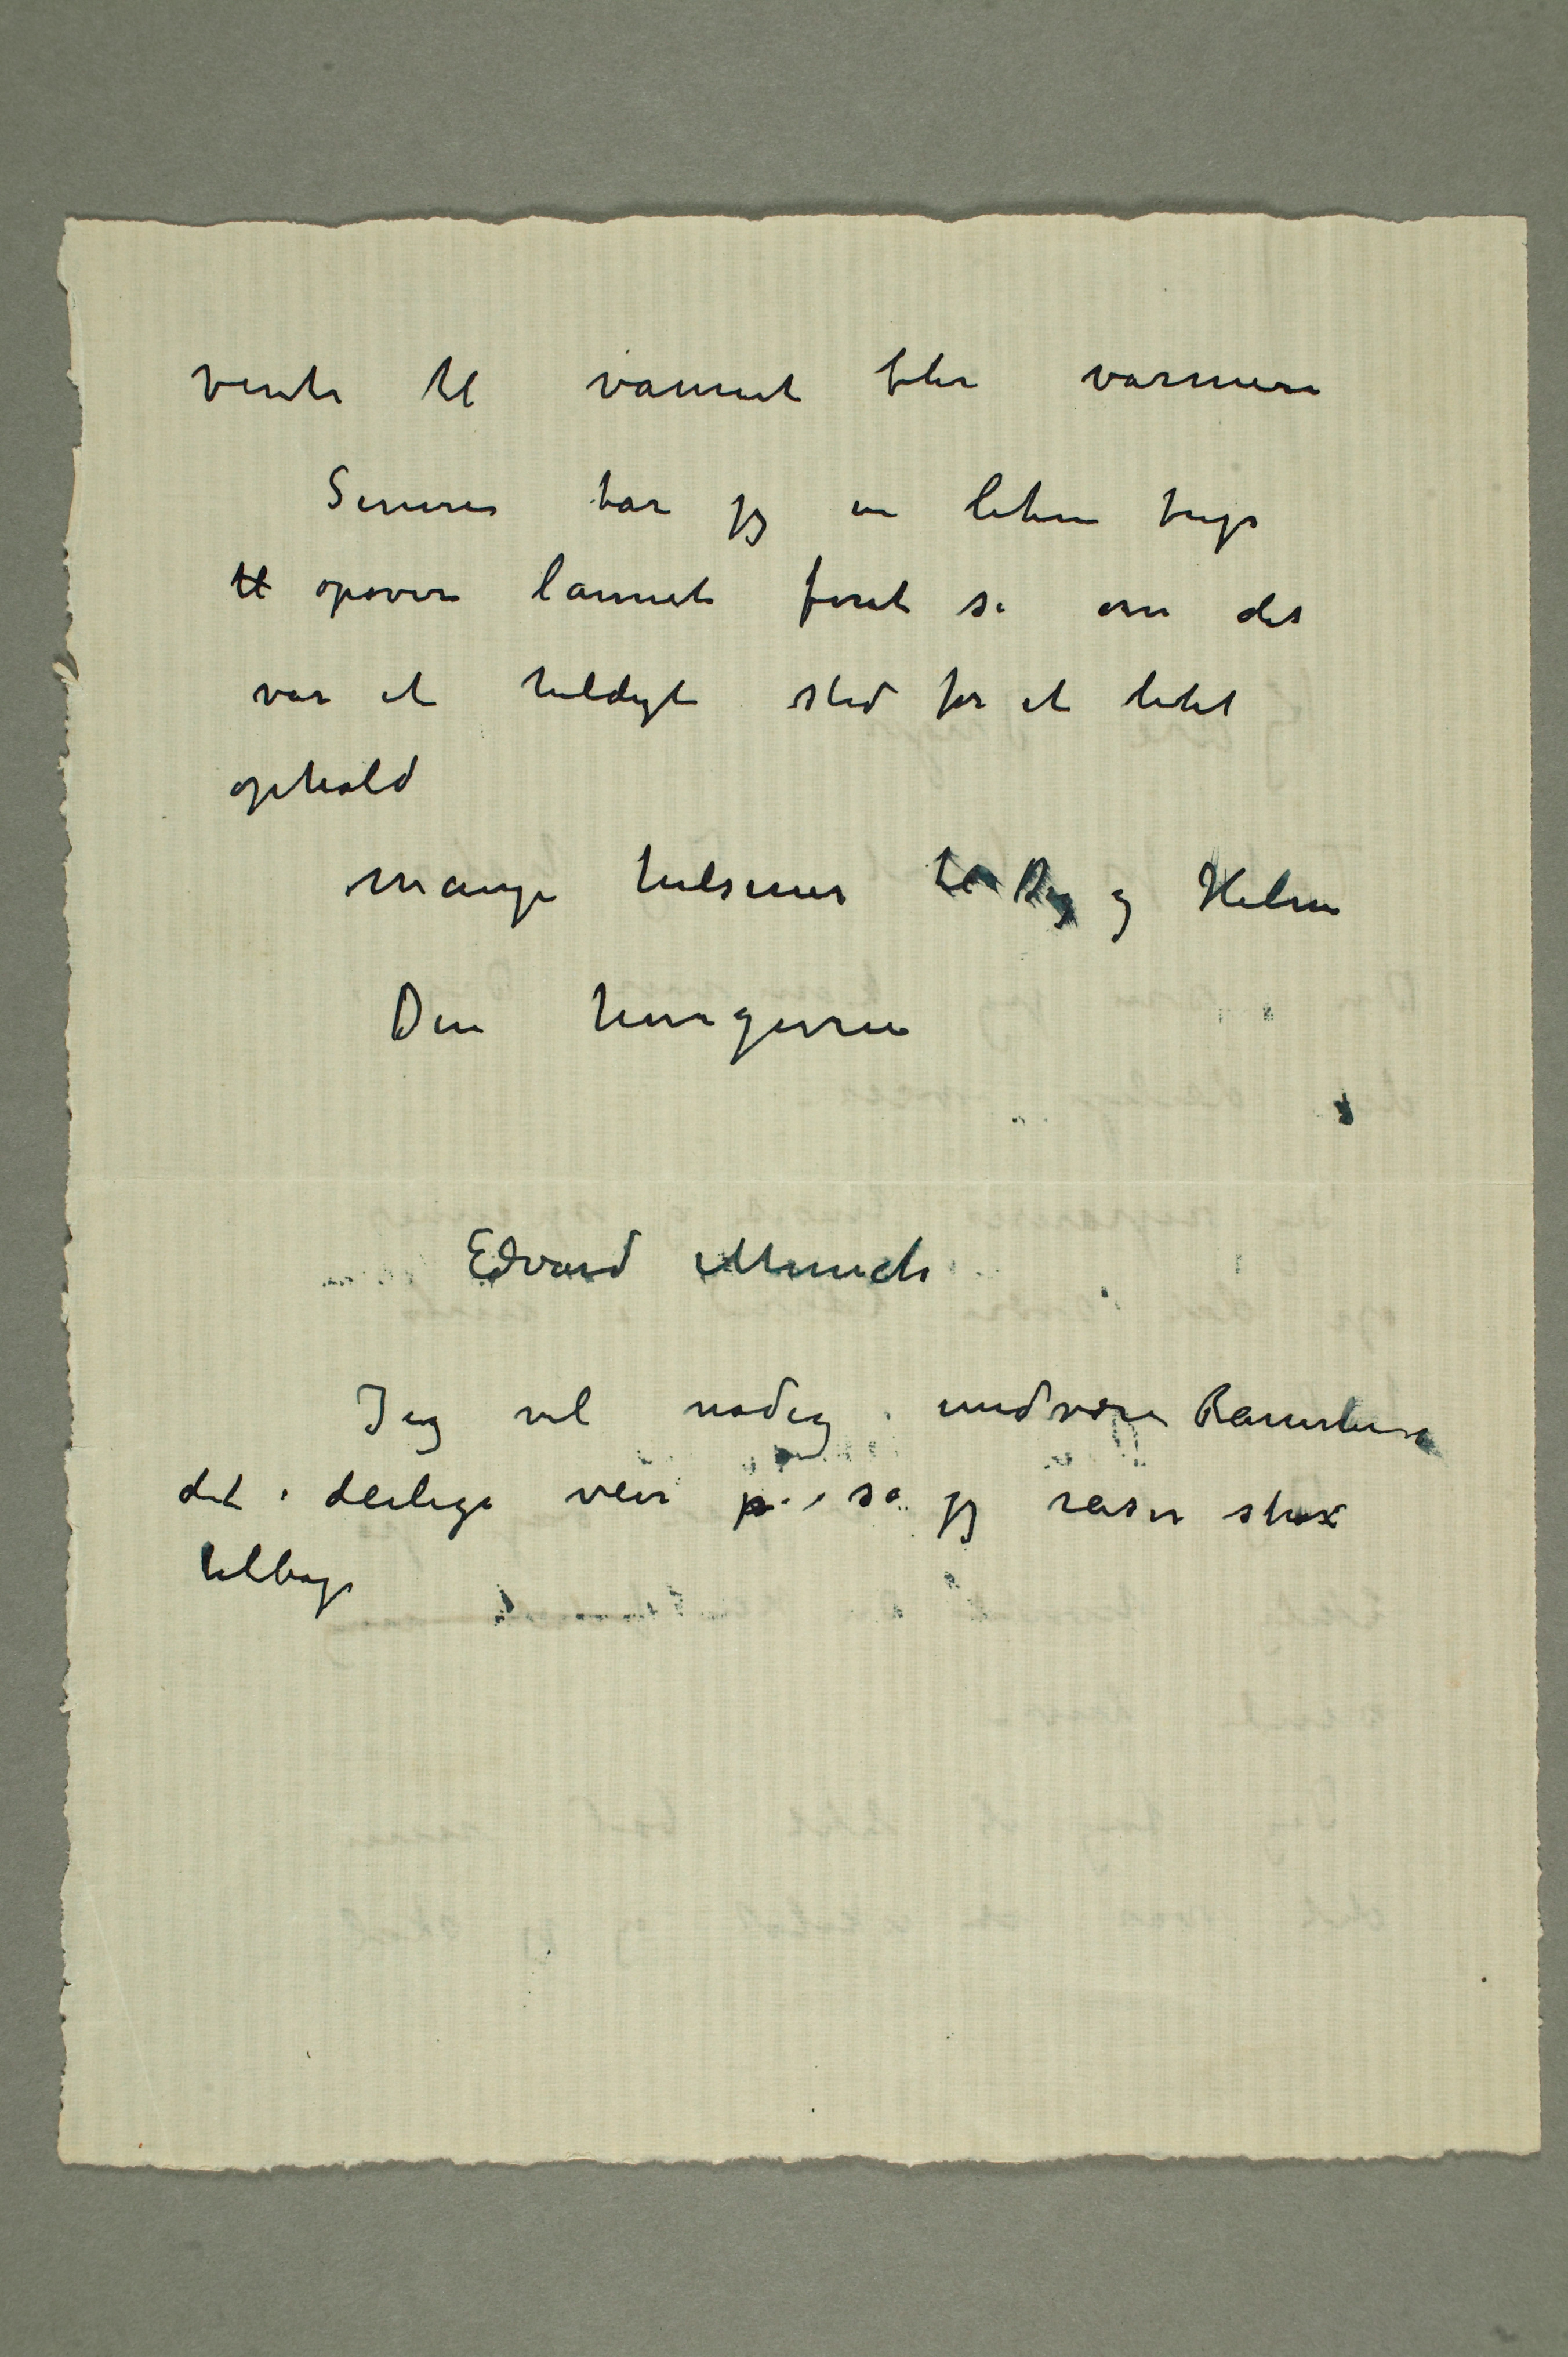 vente til vannet blir varmere
Senere tar jeg en liten tur
til opover lannet for at se om det
var et heldigt sted for et litet
ophold
Mange hilsener til Dig og Helene
Din hengivne
Edvard Munch
Jeg vil nødig undvære Ramslien
det deilige veir på så jeg reiser strax
tilbage